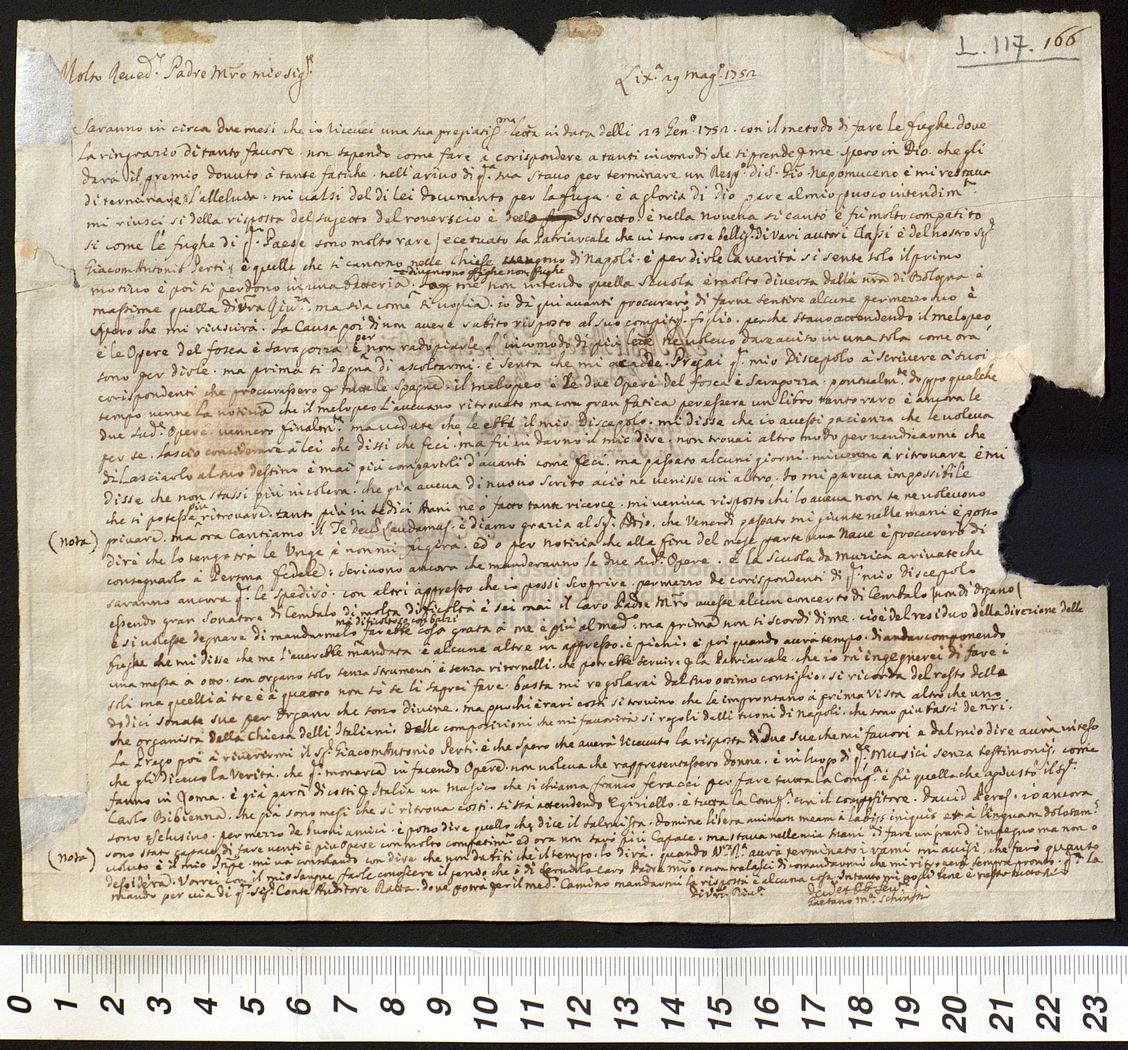 L. 117. 166
Molto Reved.º Padre Mro mio sig.r
Lix.a 29 Mag.o 1752
Saranno in circa due mesi che io riceuei una sua pregiatis.ma lettra in data delli 23 Gen.o 1752. con il metodo di fare le fughe. dove
la ringrazio di tanto favore. non sapendo come fare a corispondere a tanti incomodi che si prende per me. spero in Dio. che gli
darà il premio douuto à tante fatiche. nell'arivo di q.a sua stavo per terminare un Resp.o di S. Gio. Nepomuceno è mi restava
di terminare l'alleluia. mi valsi del di lei documento per la fuga. è a gloria di Dio pare al mio puoco intendim.to
mi riuscì si della risposta del sugetto del roverscio è dello stretto, è nella novena si cantò è fù molto compatito
si come le fughe di q.o Paese sono molto rare / ecetuato la Patriarcale che vi sono cose bellis.e di vari autori classi è del nostro sig.r
Giacom'Antonio Perti / è quelle che si cantono nelle chiese di Napoli. è per dirle la verità si sente solo il primo
diventono offighe non fughe
motivo è poi si perdono in una frateria. mè non intendo quella scuola è molto diversa dalla nrã di Bologna è
massime quella di Vrã Riv.za ma sia come si voglia. io da qui avanti procurerò di farne sentire alcune per mezzo suo è
spero che mi riuscirà. La causa poi di non avere subito risposto al suo compitis.o foglio. perche stavo attendendo il melopeo
è le Opere del fosca è Saragozza. è per non radopiarle l'incomodo di più lettre ne volevo dare aviso in una sola come ora
sono per dirle. ma prima si degna di ascoltarmi. è senta che mi acadde. Pregai q.o mio Discepolo à scrivere à suoi
corispondenti che procurassero per tutte le Spagne. il melopeo è le due Opere del fosca è Saragozza. pontualm.te doppo qualche
tempo venne la notizia che il melopeo l'avevano ritrovato ma con gran fatica per essere un libro tanto raro è ancora le
due sud.e Opere. vennero finalm.te ma vedute che le ebbe il mio Discepolo. mi disse che io avessi pacienza che le voleva
per se. lascio considerare à lei che dissi che feci. ma fù indarno il mio dire. non trovai altro modo per vendicarme che
di lasciarlo al suo destino è mai più comparirli d'avanti come feci. ma passato alcuni giorni. mi venne à ritrovare è mi
disse che non stassi più in colera. che già aveva di nuovo scrito aciò ne venisse un altro. Io mi pareva impossibile
che si potesse più ritrovare. tanto più in sedici Anni ne ò facto tante ricerce. mi veniva risposto chi lo aveva non se ne volevono
(nota) privare. ma ora Cantiamo il Te deus laudamus. è diamo grazia al Sig. Iddio. che Venerdì passato mi giunte nelle mani è posso
dire che lo tengo tra le Unge è non mi fugerà. ed ò per notizia che alla fine del mese parte una Nave è procurerò di
consegnarlo à Persona fedele. scrivono ancora che manderanno le due sud.e Opere è la scuola da muzica. arivate che
saranno ancora q.e le spedirò. con altri appresso che io possi scoprire. per mezzo de corispondenti di q.o mio discepolo
essendo gran Sonatore di Cembalo di molta dificoltà è sei mai il Caro Padre Mro avesse alcun concerto di Cembalo / non di Organo /
ma di sicoltoze con balzi
è si volesse degnare di mandarmelo farebbe cosa grata à me è più al med.o ma prima non si scordi di me. cioè del residuo della direzione delle
fughe che mi disse che me l'averebbe mandata è alcune altre in appresso. è pieni. è poi quando avrà tempo. di andar componendo
una messa à otto. con organo solo senza strumenti è senza ritornelli. che potrebbe servire per la Patriarcale. che io m'ingegnerei di fare i
soli ma quelli à tre è à quattro non sò se li saprei fare. basta mi regolarei dal suo ottimo consiglio. si ricorda del resto delle
dodici sonate sue per Organo che sono divine. ma puochi è rari costì si trovino che le improntano à prima vista. altro che uno.
che organista della Chiesa delli Italiani. delle composizioni che mi favorirà si regoli dalli tuoni di Napoli. che sono più bassi de nri.
La Prego poi à riverirmi il Sig. Giacom'Antonio Perti. è che spero che averà ricevuto la risposta di due sue che mi favorì è dal mio dire avrà inteso
che gli dicevo la Verità. che q.o monarca in facendo Opere. non voleva che rappresentassero donne. è in luogo di q.e Musici senza testimonij. come
fanno in Roma. è già partì di costì per Italia un Musico che si chiama Franco feracci per fare tutta la Comp.a è fù quella che apiustò il Sig.r
Carlo Bibienna. che già sono mesi che si ritrova costì. si stà attendendo Egiziello. è tutta la Comp.a con il compositore. David Peres. io ancora
sono escluso. per mezzo de buoni amici. è posso dire quello che dice il Salmista. Domine libera animam meam à labijs iniquis et à lingua dolosam.
sono stato capace di fare venti è più Opere con molto compatim.to ed ora non sarò più Capace. ma stava nelle mie Mani di fare un grand'impegno ma non ò
(nota) voluto. è il mio Pnpe. mi và consolando con dire che non dubiti che il tempo lo dirà. quando V.ra R.a averà terminato i rami mi avisi. che farò quanto
desidera. Vorrei con il mio sangue farle conoscere il sendo che è di servirla. Caro Padre Mro. non tralasci di comandarmi che mi ritroverà sempre pronto. q.a la
mando per via di q.o Sig.r Conte Auditore Ratta. dove potrà per il med.o Camino mandarmi la risposta è alcuna cosa. Intanto mi vogli bene è resto tutto suo
di V.ra Riv.a
Dev. et Obb. Serv.re
Gaetano M.a Schiassi
0 1 2 3 4 5 6 7 8 9 10 11 12 13 14 15 16 17 18 19 20 21 22 23